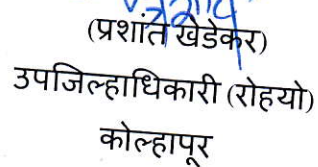 (प्रशांत खेडेकर)
उपजिल्हाधिकारी (रोहयो)
कोल्हापूर